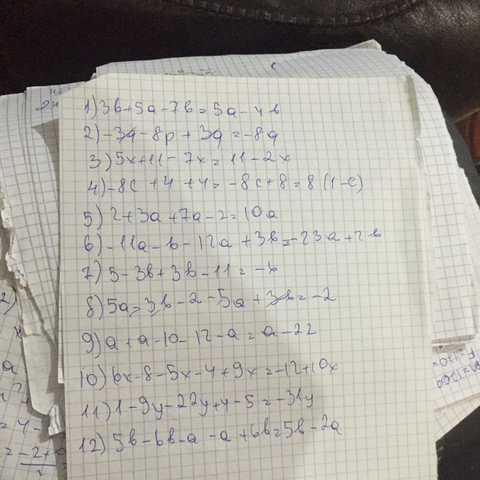 1) 3b+5a-7b=5a-4b
2) -3q-8p+3q=-8q
3) 5x+11-7x=11-2x
4) -8c+4+4=-8c+8=8(1-c)
5) 2+3a+7a-2=10a
6) -11a-b-12a+3b=-23a+2b
7) 5-3b+3b-11=-6
8) 5a-3b-2-5a+3b=-2
9) a+a-10-12-a=a-22
10) 6x-8-5x-4+9x=-12+10x
11) 1-9y-22y+4-5=-31y
12) 5b-6b-a-a+6b=5b-2a